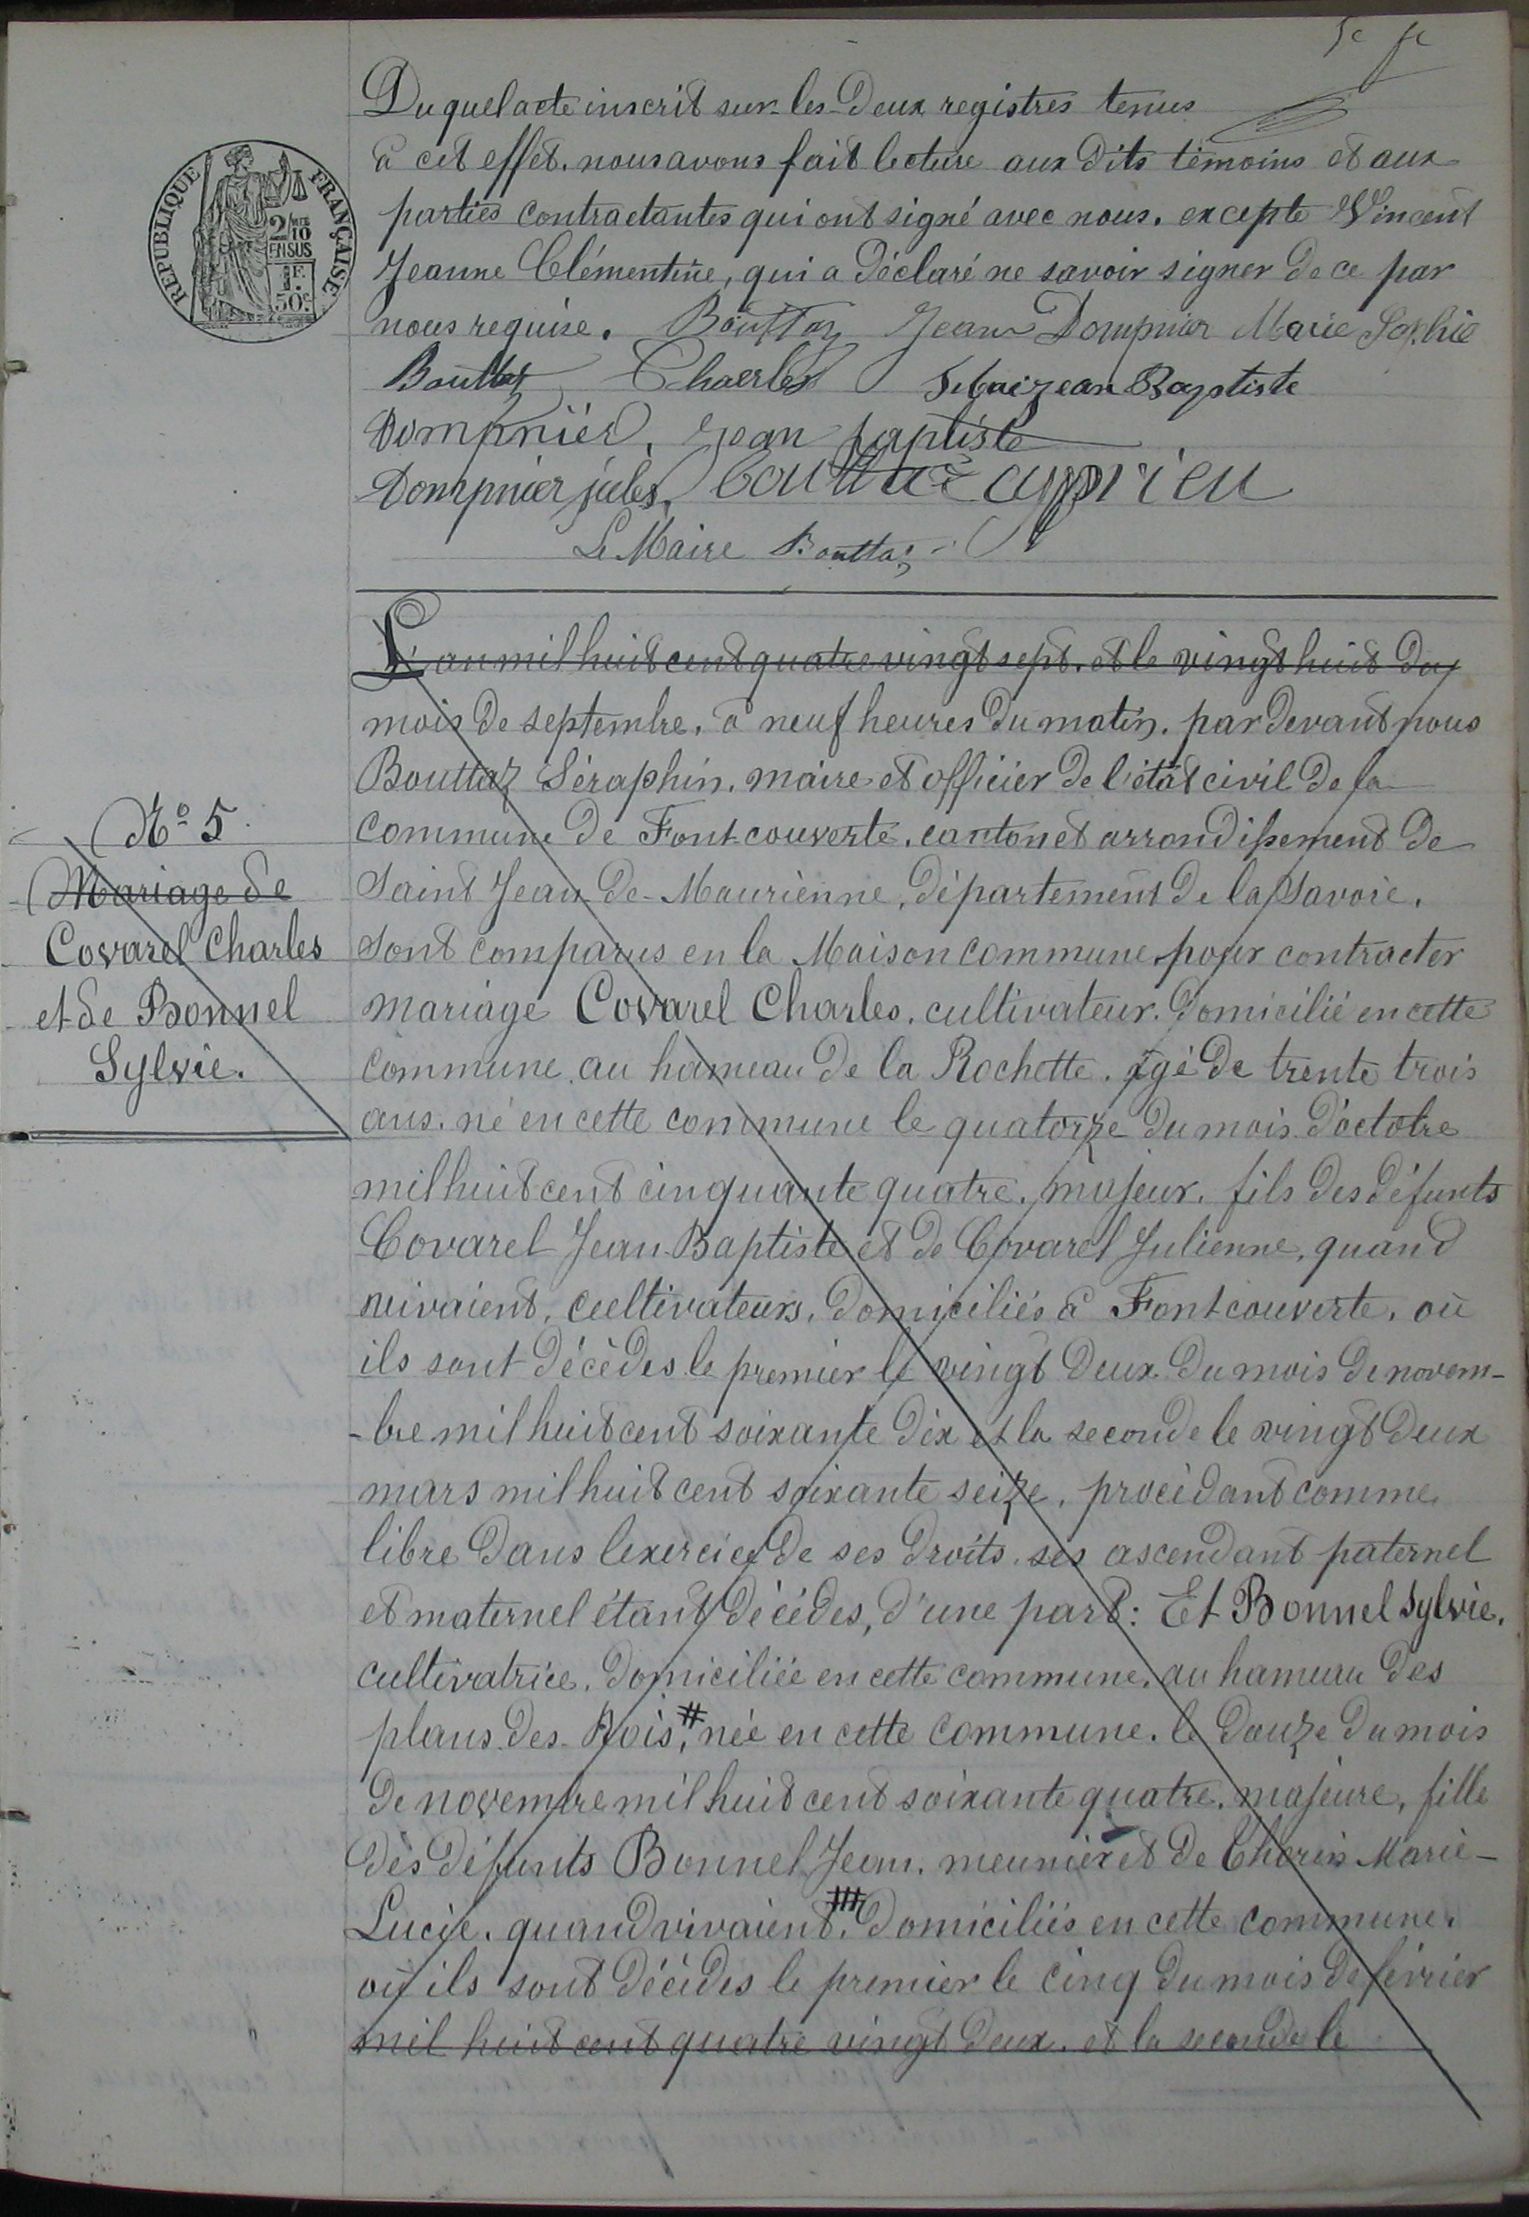 5e fe
Duquel acte inscrit sur les deux registres tenus
à cet effet, nous avons fait lecture aux dits témoins et aux
parties contractantes qui ont signé avec nous. excepte Vincent
Jeanne Clémentine, qui a déclaré ne savoir signer de ce par
nous requise. Bouttaz Jean Dompnier Marie Sophie
Bouttaz Charles Jean Baptiste
Dompnier, Jean baptiste
Dompnier jules, bouttaz cyprien
Le Maire Bouttaz
REPUBLIQUE FRANÇAISE
2/10
EN SUS
1F.
50c
L'an mil huit cent quatre vingt sept. et le vingt huit du
mois de septembre, à neuf heures du matin. par devant nous
Bouttaz Séraphin, maire et officier de l'état civil de la
commune de Fontcouverte, canton et arrondissement de
Saint Jean-de-Maurienne, département de la Savoie.
sont comparus en la Maison commune pour contracter
mariage Covarel Charles, cultivateur. domicilié en cette
commune, au hameau de la Rochette. agé de trente trois
ans. né en cette commune le quatorze du mois d'octobre
mil huit cent cinquante quatre, majeur, fils des défunts
Covarel Jean-Baptiste et de Covarel Julienne, quand
vivaient, cultivateurs, domiciliés à Fontcouverte, où
ils sont décèdes le premier le vingt deux du mois de novem-
-bre mil huit cent soixante dix et la seconde le vingt deux
mars mil huit cent soixante seize, procédant comme
libre dans l'exercice de ses droits. ses ascendant paternel
et maternel étant décédes, d'une part: Et Bonnel Sylvie,
cultivatrice, domiciliée en cette commune, au hameau des
plans des Rois,# née en cette commune. le douze du mois
de novembre mil huit cent soixante quatre, majeure, fille
des défunts Bonnel Jean, meunier et de Chorin Marie-
Lucie, quand vivaient, domiciliés en cette commune.
où ils sont décédes le premier le cinq du mois de février
mil huit cent quatre vingt deux. et la seconde le
No 5.
Mariage de
Covarel Charles
et de Bonnel
Sylvie.